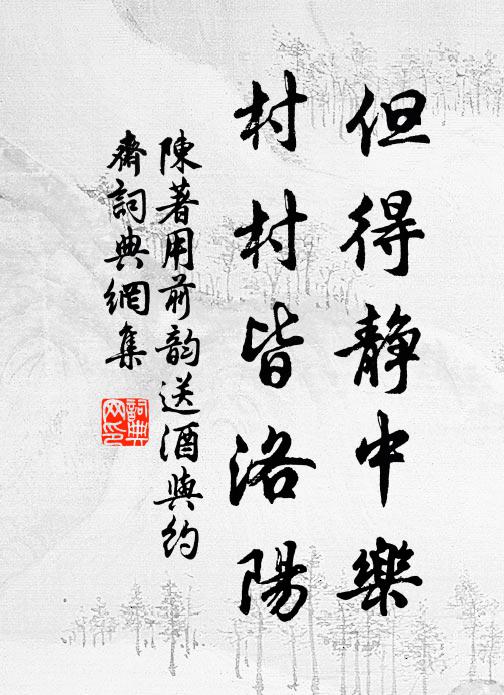 但得靜中樂
村村皆洛陽
陳著用前韵送酒與約
齋詞典網集
詞典
网印